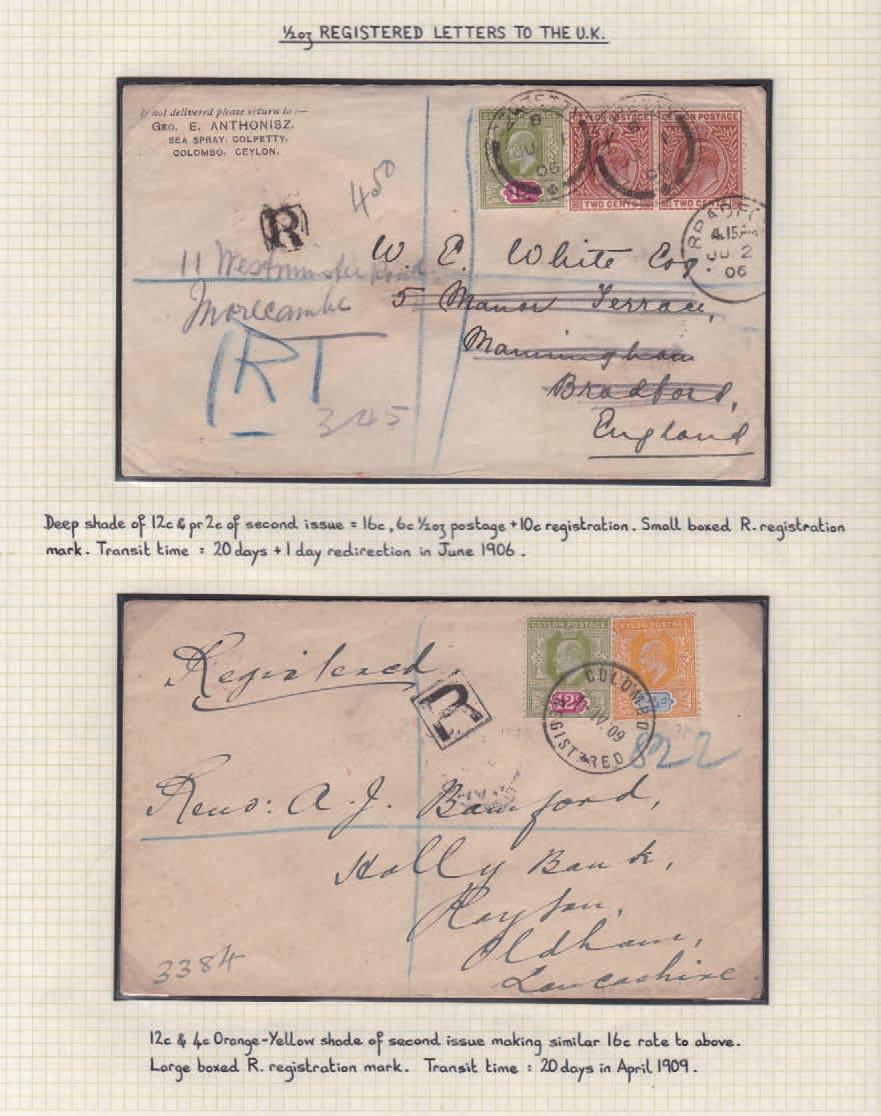 ½oz REGISTERED LETTERS TO THE U.K.
If not delivered please return to:—
GEO. E. ANTHONISZ,
SEA SPRAY, COLPETTY,
COLOMBO, CEYLON.
450
R
CEYLON POSTAGE
TWO CENTS
TWO CENTS
JU 1
06
BRADFO
4.15AM
JU 2
06
W. E. White Esq.
11 Westminster Road
Morecambe
5 Manor Terrace,
Manningham
Bradford,
England
R
345
Deep shade of 12c & pr 2c of second issue = 16c, 6c ½oz postage + 10c registration. Small boxed R. registration
mark. Transit time = 20 days + 1 day redirection in June 1906.
CEYLON POSTAGE
CEYLON POSTAGE
12c
Registered
R
COLOMBO
IV. 09
REGISTERED
822
Revd: A. J. Bamford,
Holly Bank,
Royton,
Oldham,
Lancashire.
3384
12c & 4c Orange-Yellow shade of second issue making similar 16c rate to above.
Large boxed R. registration mark. Transit time = 20 days in April 1909.